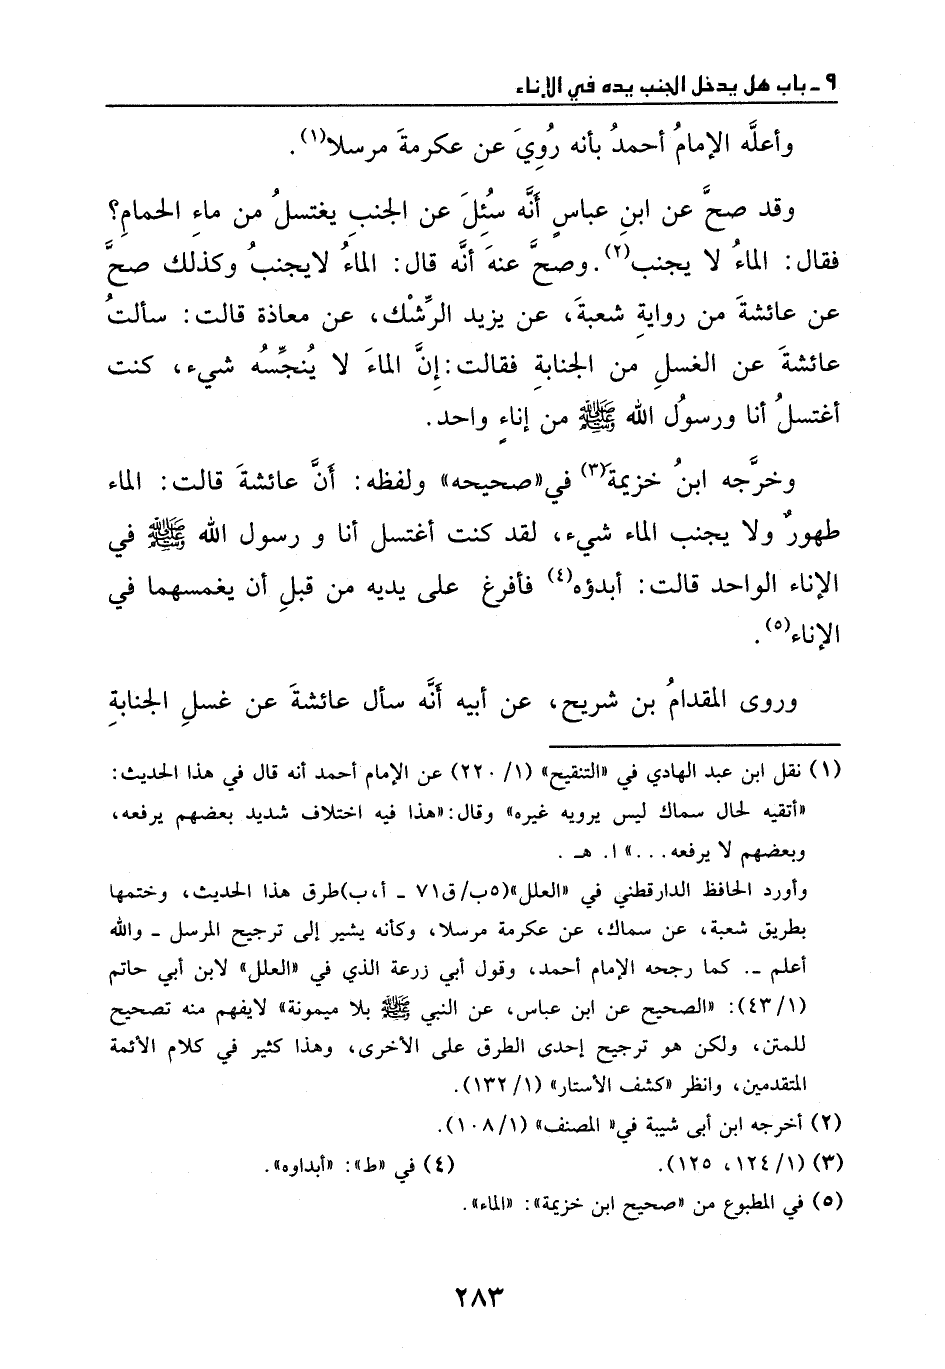 ٩ - باب هل يدخل الجنب يده في الإناء
وأعلَّه الإمامُ أحمدُ بأنه رُوِيَ عن عكرمةَ مرسلا(١).
وقد صحَّ عن ابنِ عباسٍ أَنَّه سُئِلَ عن الجنبِ يغتسلُ من ماءِ الحمامِ؟
فقال: الماءُ لا يجنب(٢). وصحَّ عنهَ أنَّه قال: الماءُ لايجنبُ وكذلك صحَّ
عن عائشةَ من روايةِ شعبةَ، عن يزيد الرِّشْك، عن معاذة قالت: سألتُ
عائشةَ عن الغسلِ من الجنابةِ فقالت: إنَّ الماءَ لا يُنجِّسُه شيء، كنت
أغتسلُ أنا ورسولُ الله ﷺ من إناءٍ واحد.
وخرَّجه ابنُ خزيمةَ(٣) في «صحيحه» ولفظه: أنَّ عائشةَ قالت: الماء
طهورٌ ولا يجنب الماء شيء، لقد كنت أغتسل أنا و رسول الله ﷺ في
الإناء الواحد قالت: أبدؤه(٤) فأفرغ على يديه من قبلِ أن يغمسهما في
الإناء(٥).
وروى المقدامُ بن شريح، عن أبيه أَنَّه سأل عائشةَ عن غسلِ الجنابةِ
(١) نقل ابن عبد الهادي في «التنقيح» (١/ ٢٢٠) عن الإمام أحمد أنه قال في هذا الحديث:
«أتقيه لحال سماك ليس يرويه غيره» وقال: «هذا فيه اختلاف شديد بعضهم يرفعه،
وبعضهم لا يرفعه...» ا. هـ .
وأورد الحافظ الدارقطني في «العلل»(٥ب/ق٧١ ـ أ،ب)طرق هذا الحديث، وختمها
بطريق شعبة، عن سماك، عن عكرمة مرسلا، وكأنه يشير إلى ترجيح المرسل ـ والله
أعلم ـ. كما رجحه الإمام أحمد، وقول أبي زرعة الذي في «العلل» لابن أبي حاتم
(١/ ٤٣): «الصحيح عن ابن عباس، عن النبي ﷺ بلا ميمونة» لايفهم منه تصحيح
للمتن، ولكن هو ترجيح إحدى الطرق على الأخرى، وهذا كثير في كلام الأئمة
المتقدمين، وانظر «كشف الأستار» (١/ ١٣٢).
(٢) أخرجه ابن أبى شيبة في« المصنف» (١/ ١٠٨).
(٣) (١/ ١٢٤، ١٢٥). (٤) في «ط»: «أبداوه».
(٥) في المطبوع من «صحيح ابن خزيمة»: «الماء».
٢٨٣